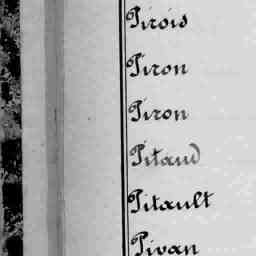 Pirois
Piron
Piron
Pitaud
Pitault
Pivan